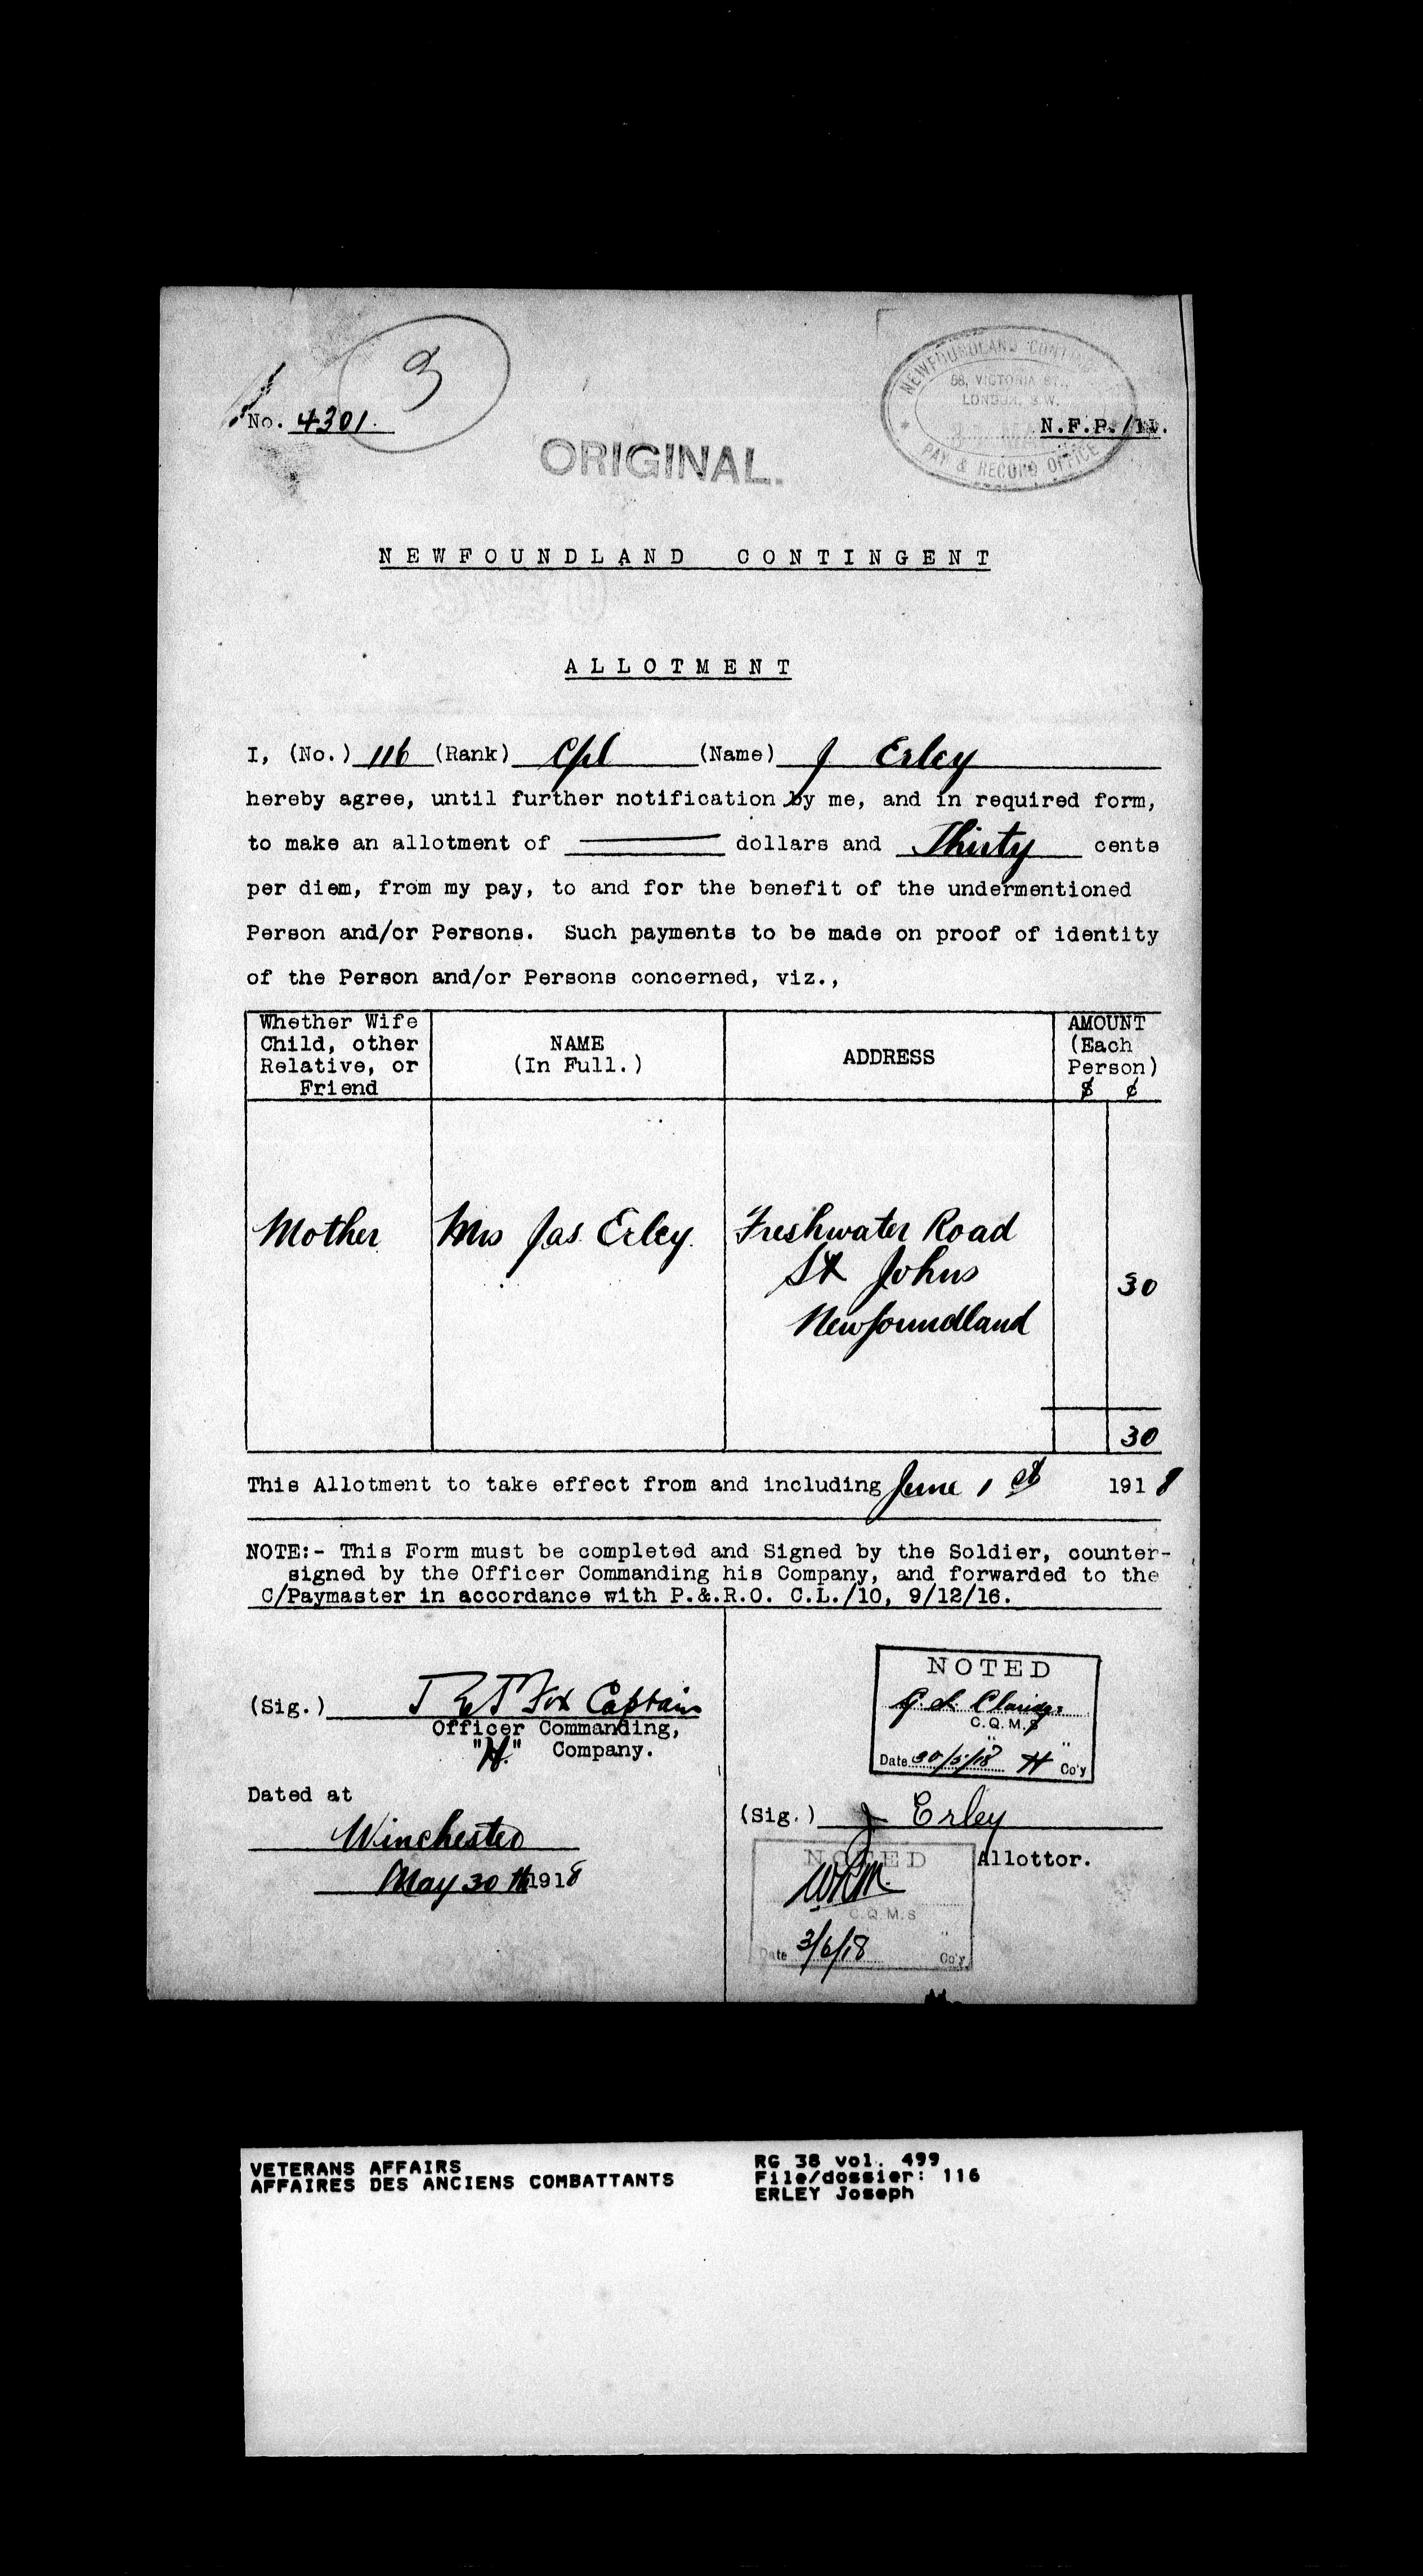 3
NEWFOUNDLAND CONTINGENT
58, VICTORIA ST.,
LONDON, S.W.
PAY & RECORD OFFICE
No. 4301.
N.F.P./11.
ORIGINAL.
NEWFOUNDLAND CONTINGENT
ALLOTMENT
I, (No.) 116 (Rank) Cpl (Name) J Erley
hereby agree, until further notification by me, and in required form,
to make an allotment of ——— dollars and Thirty cents
per diem, from my pay, to and for the benefit of the undermentioned
Person and/or Persons. Such payments to be made on proof of identity
of the Person and/or Persons concerned, viz.,
Whether Wife
Child, other
Relative, or
Friend
NAME
(In Full.)
ADDRESS
AMOUNT
(Each
Person)
$ ¢
Mother
Mrs Jas. Erley.
Freshwater Road
St Johns
Newfoundland
30
30
This Allotment to take effect from and including June 1st 1918
NOTE:- This Form must be completed and Signed by the Soldier, counter-
signed by the Officer Commanding his Company, and forwarded to the
C/Paymaster in accordance with P.&.R.O. C.L./10, 9/12/16.
(Sig.) Fox Captain
Officer Commanding,
"H." Company.
Dated at
Winchester
May 30th 1918
NOTED
C.Q.M.S
Date 30/5/18 "H" Co'y
(Sig.) J Erley
Allottor.
NOTED
C.Q.M.S
Date 3/6/18 " Co'y
VETERANS AFFAIRS
AFFAIRES DES ANCIENS COMBATTANTS
RG 38 vol. 499
File/dossier: 116
ERLEY Joseph